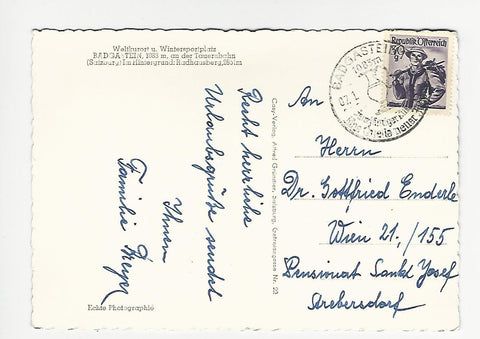 Weltkurort u. Wintersportplatz
BADGASTEIN, 1083 m, an der Tauernbahn
(Salzburg) Im Hintergrund: Radhausberg,
Recht herrliche
Urlaubsgrüße sendet
Ihnen
Familie
Echte Photographie
Cosy-Verlag, Alfred Gründler, Salzburg,
Nr. 23
BADGASTEIN
Republik Österreich
An
Herrn
Dr. Gottfried Enderle
Wien 21./155
Pensionat Sankt Josef
Strebersdorf